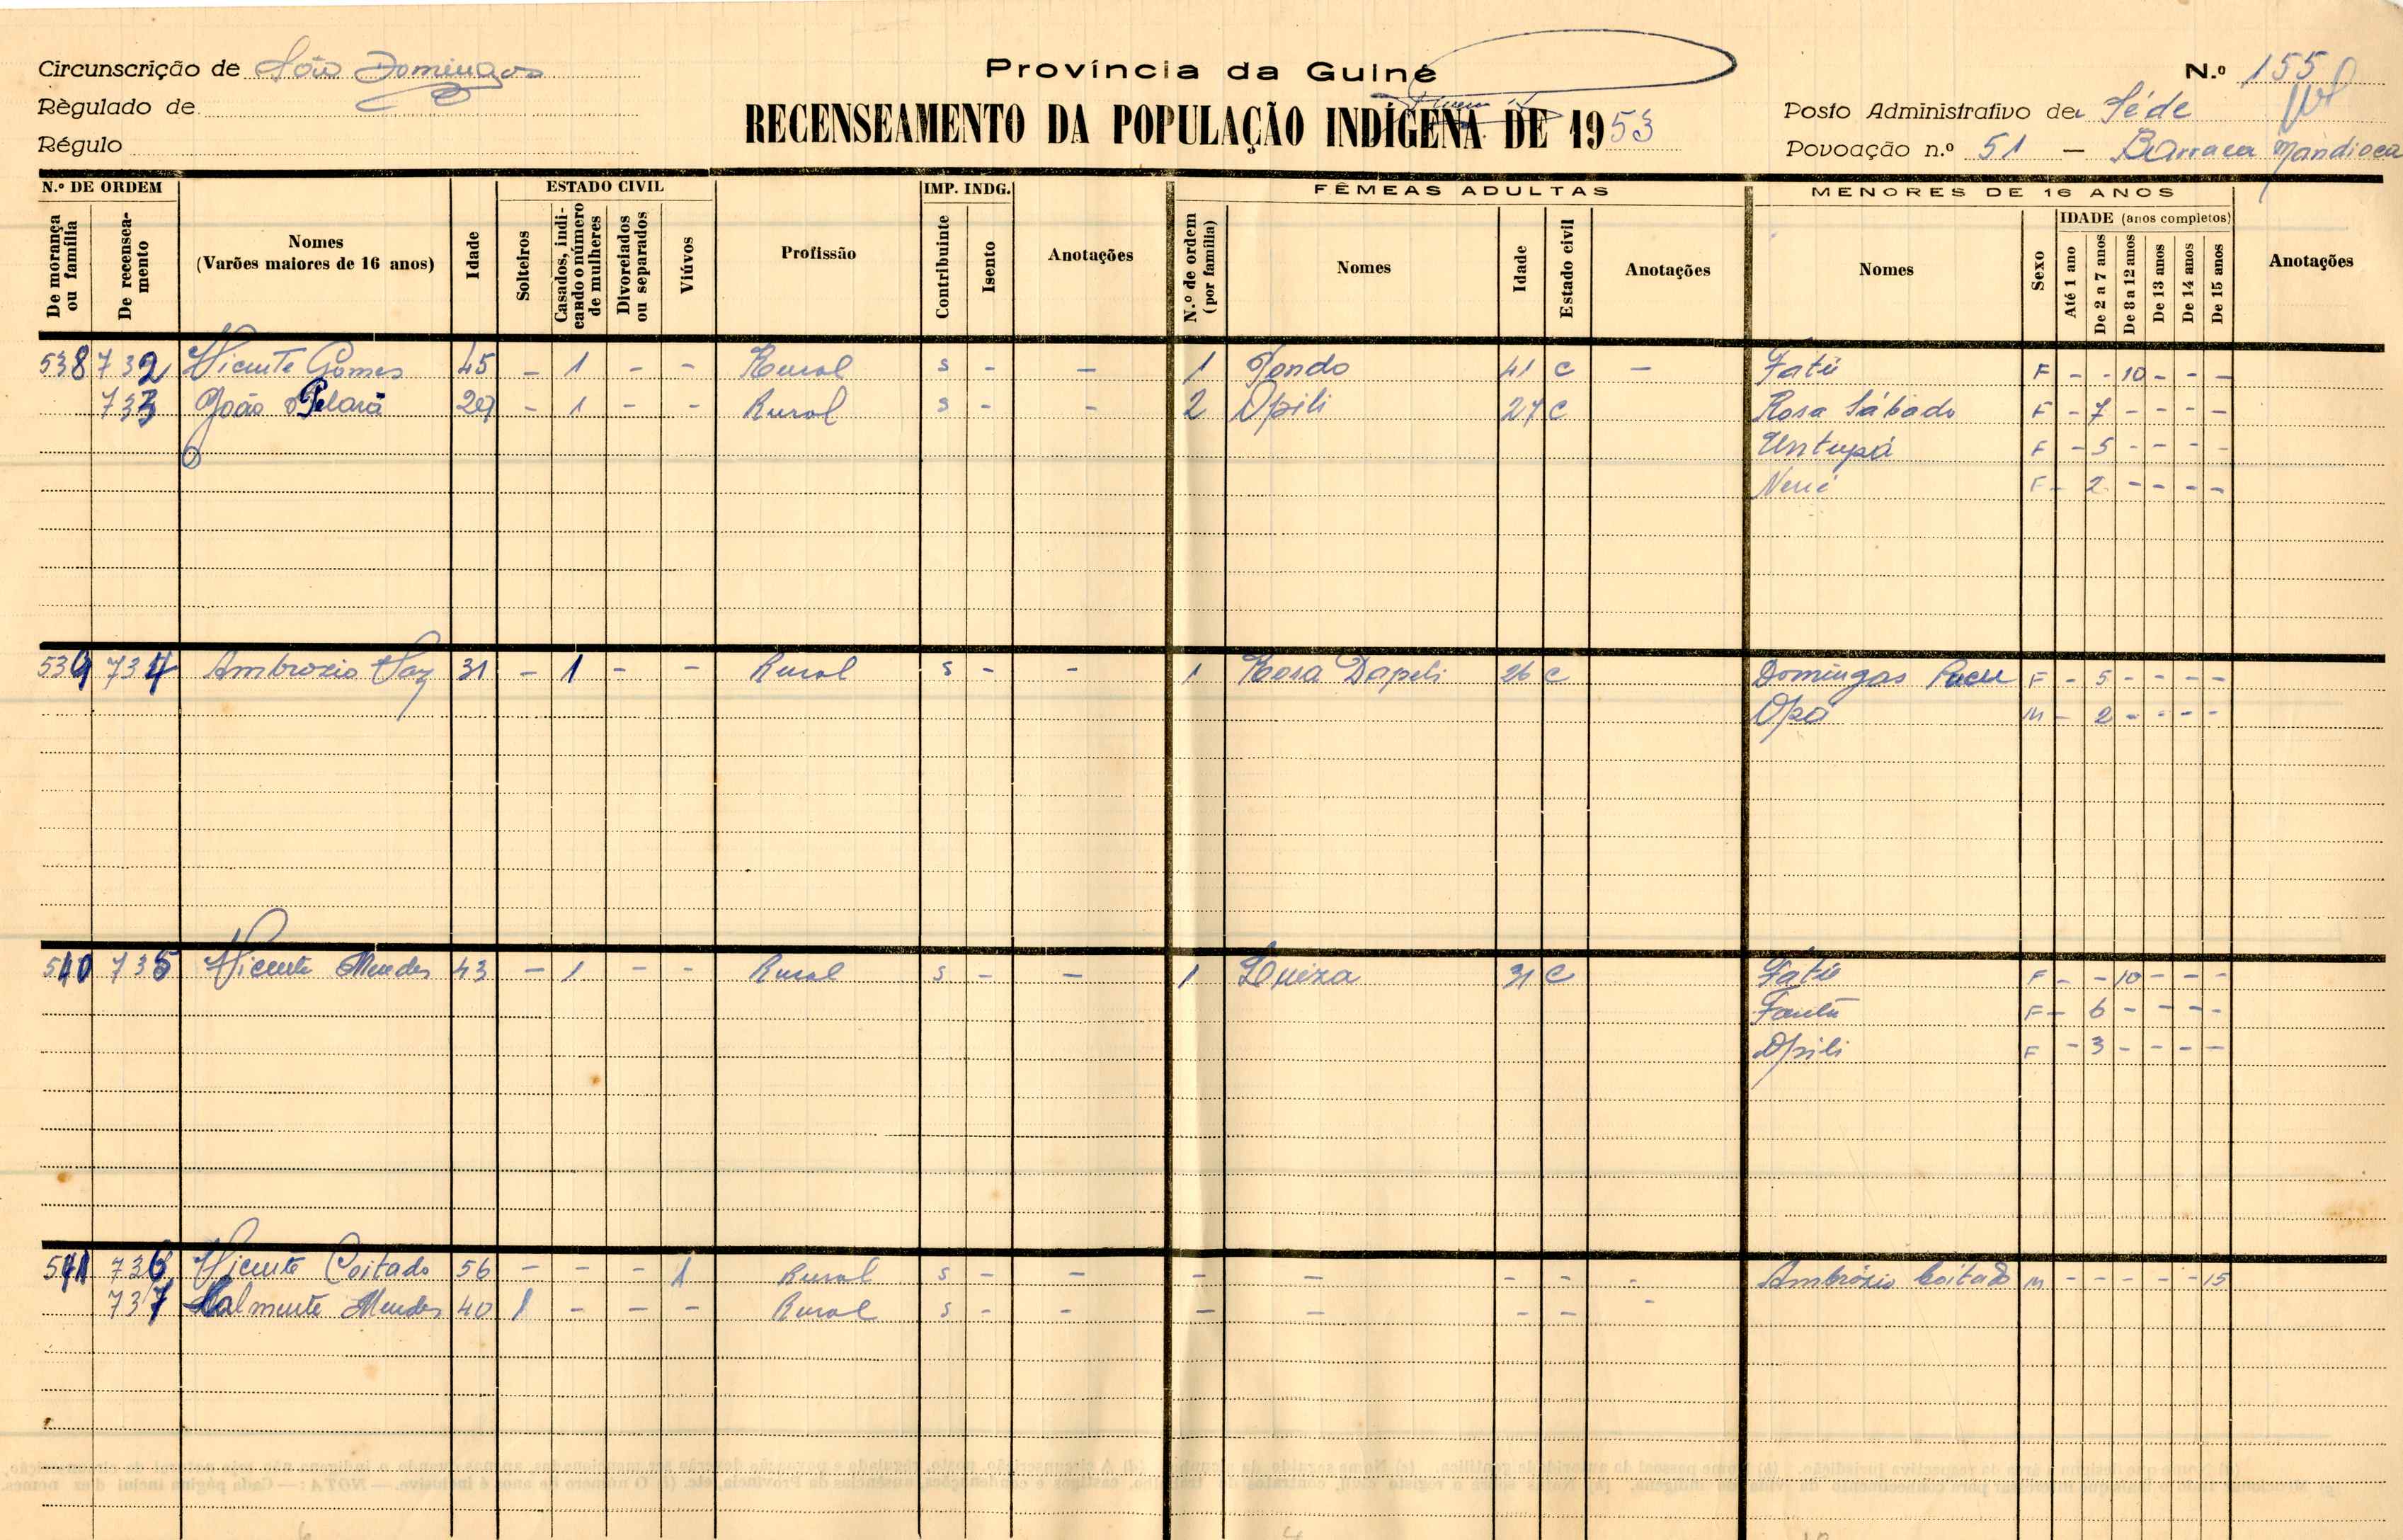 Circunscrição de São Domingos
Règulado de
Régulo
Província da Guiné
RECENSEAMENTO DA POPULAÇÃO INDÍGENA DE 1953
N.º 155
Posto Administrativo de Séde
Povoação n.º 51 — Barraca Mandioca
N.º DE ORDEM
De morança ou família
De recensea-mento
Nomes
(Varões maiores de 16 anos)
Idade
ESTADO CIVIL
Solteiros
Casados, indi-cando o número de mulheres
Divorciados ou separados
Viúvos
Profissão
IMP. INDG.
Contribuinte
Isento
Anotações
FÊMEAS ADULTAS
N.º de ordem (por família)
Nomes
Idade
Estado civil
Anotações
MENORES DE 16 ANOS
Nomes
Sexo
IDADE (anos completos)
Até 1 ano
De 2 a 7 anos
De 8 a 12 anos
De 13 anos
De 14 anos
De 15 anos
Anotações
538 732 Vicente Gomes 45 - 1 - - Rural s - - 1 Tondo 41 C - Fatú F - - 10 - - -
733 João Pelorá 29 - 1 - - Rural s - - 2 Opili 27 C Rosa Sábado F - 7 - - - -
Untupá F - 5 - - - -
Nené F - 2 - - - -
539 734 Ambrozio Vaz 31 - 1 - - Rural s - - 1 Rosa Dapeli 26 C Domingas F - 5 - - - -
Opá M - 2 - - - -
540 735 Vicente Mendes 43 - 1 - - Rural s - - 1 Luiza 31 C Fatú F - - 10 - - -
Fantú F - 6 - - - -
Opili F - 3 - - - -
541 736 Vicente Coitado 56 - - - 1 Rural s - - - - - - - Ambrózio Coitado M - - - - - 15
737 Malmente Mendes 40 1 - - - Rural s - - - - - - -